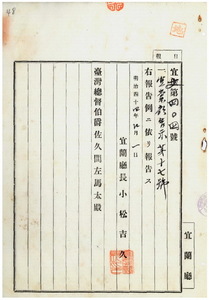 報告
宜第四〇四號
一宜蘭廳告示第十七號
右報告例ニ依リ報告ス
明治四十四年 月一日
宜蘭廳長小松吉久
臺灣總督伯爵佐久間左馬太殿
宜蘭廳